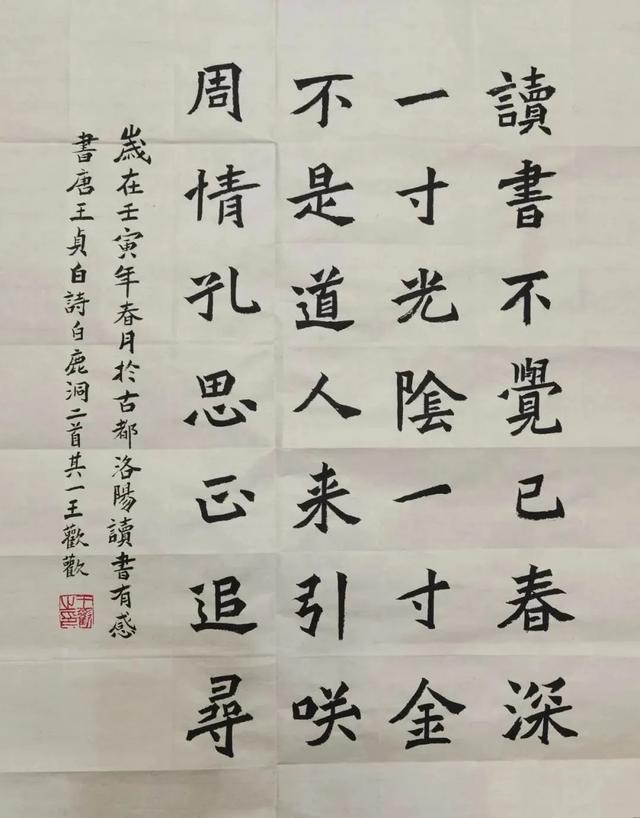 讀書不覺已春深
一寸光陰一寸金
不是道人来引咲
周情孔思正追尋
歲在壬寅年春月於古都洛陽讀書有感
書唐王貞白詩白鹿洞二首其一王歡歡